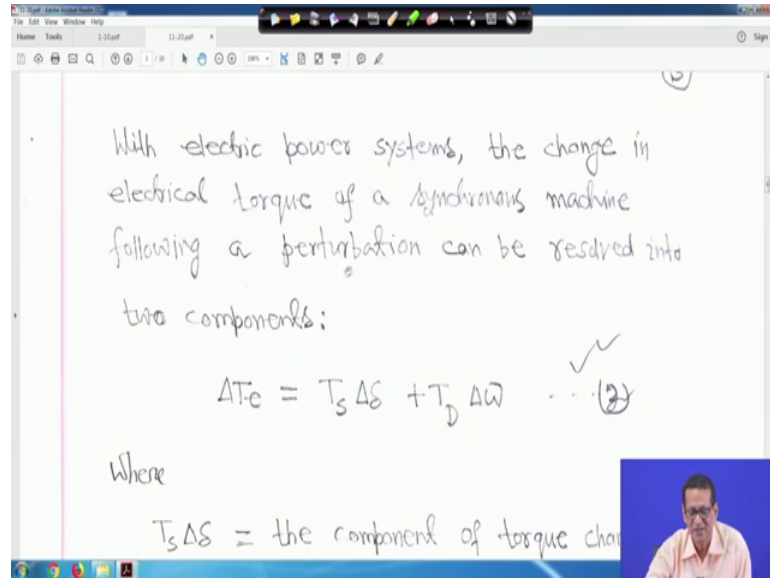 11-20.pdf - Adobe Acrobat Reader DC
File Edit View Window Help
Home Tools 1-10.pdf 11-20.pdf × Sign
With electric power systems, the change in
electrical torque of a synchronous machine
following a perturbation can be resolved into
two components:
ΔTe = T_S Δδ + T_D Δω ---(2)
Where
T_S Δδ = the component of torque chan